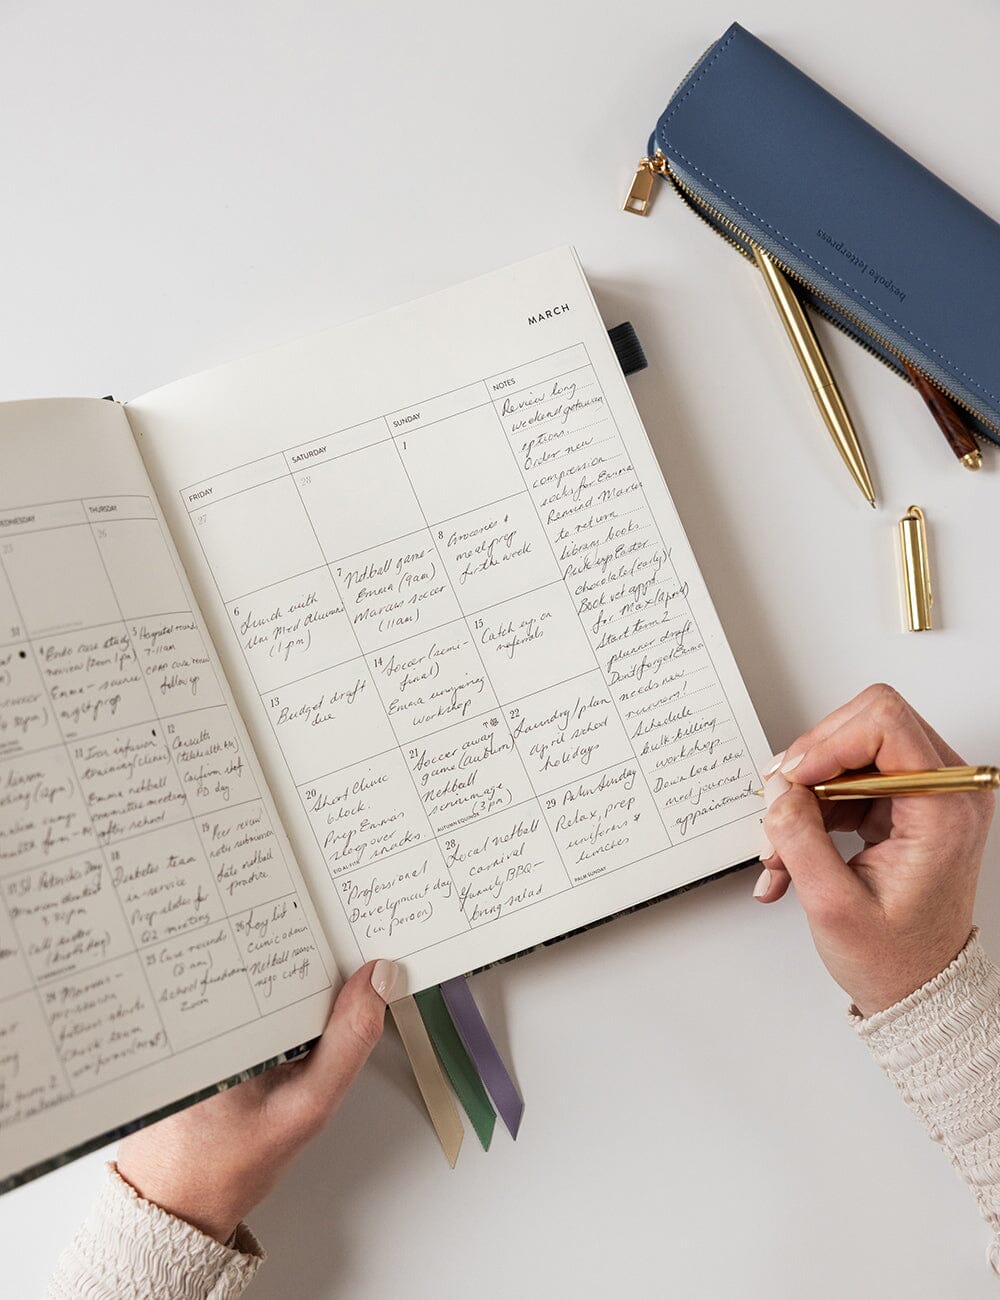 bespoke letterpress
MARCH
WEDNESDAY
THURSDAY
25
26
4 Endo case study
review (Zoom 1pm)
Emma - science
night prep
5 Hospital rounds
7-11am
follow up
11 Iron infusion
training (clinic)
Emma netball
committee meeting
after school
12 Consults
(telehealth AM)
Confirm staff
PD day
St. Patricks Day
18
Diabetes team
in-service
Prep slides for
Q2 meeting
19 Peer review
notes submission
Late netball
practice
24 Marcus -
25 Case records
(8am)
School fundraiser
Zoom
26 Key list
clinic admin
Netball
rego cutoff
FRIDAY
SATURDAY
SUNDAY
NOTES
27
28
1
6
Lunch with
Uni Med Alumni
(1pm)
7
Netball game-
Emma (9am)
Marcus soccer
(11am)
8 Groceries &
meal prep
for the week
13
Budget draft
due
14
Soccer (semi-
final)
Emma
workshop
15
Catch up on
referrals
20
Short Clinic
block.
Prep Emmas
sleepover
snacks.
EID AL-FITR
21
Soccer away
game (auburn)
Netball
scrimmage
(3pm)
AUTUMN EQUINOX
22
Laundry / plan
April school
holidays
27
Professional
Development day
(in person)
28
Local netball
carnival
Family BBQ-
bring salad
29 Palm Sunday
Relax, prep
uniforms &
lunches
PALM SUNDAY
Review long
weekend getaway
options.
Order new
compression
socks for Emma
Remind Marcus
to return
library books
Pick up Easter
chocolate (early)!
Book vet appt
for Max (April)
Start term 2
planner draft
Don't forget Emma
needs new
runners!
Schedule
bulk-billing
workshop
Download new
med journal
appointment